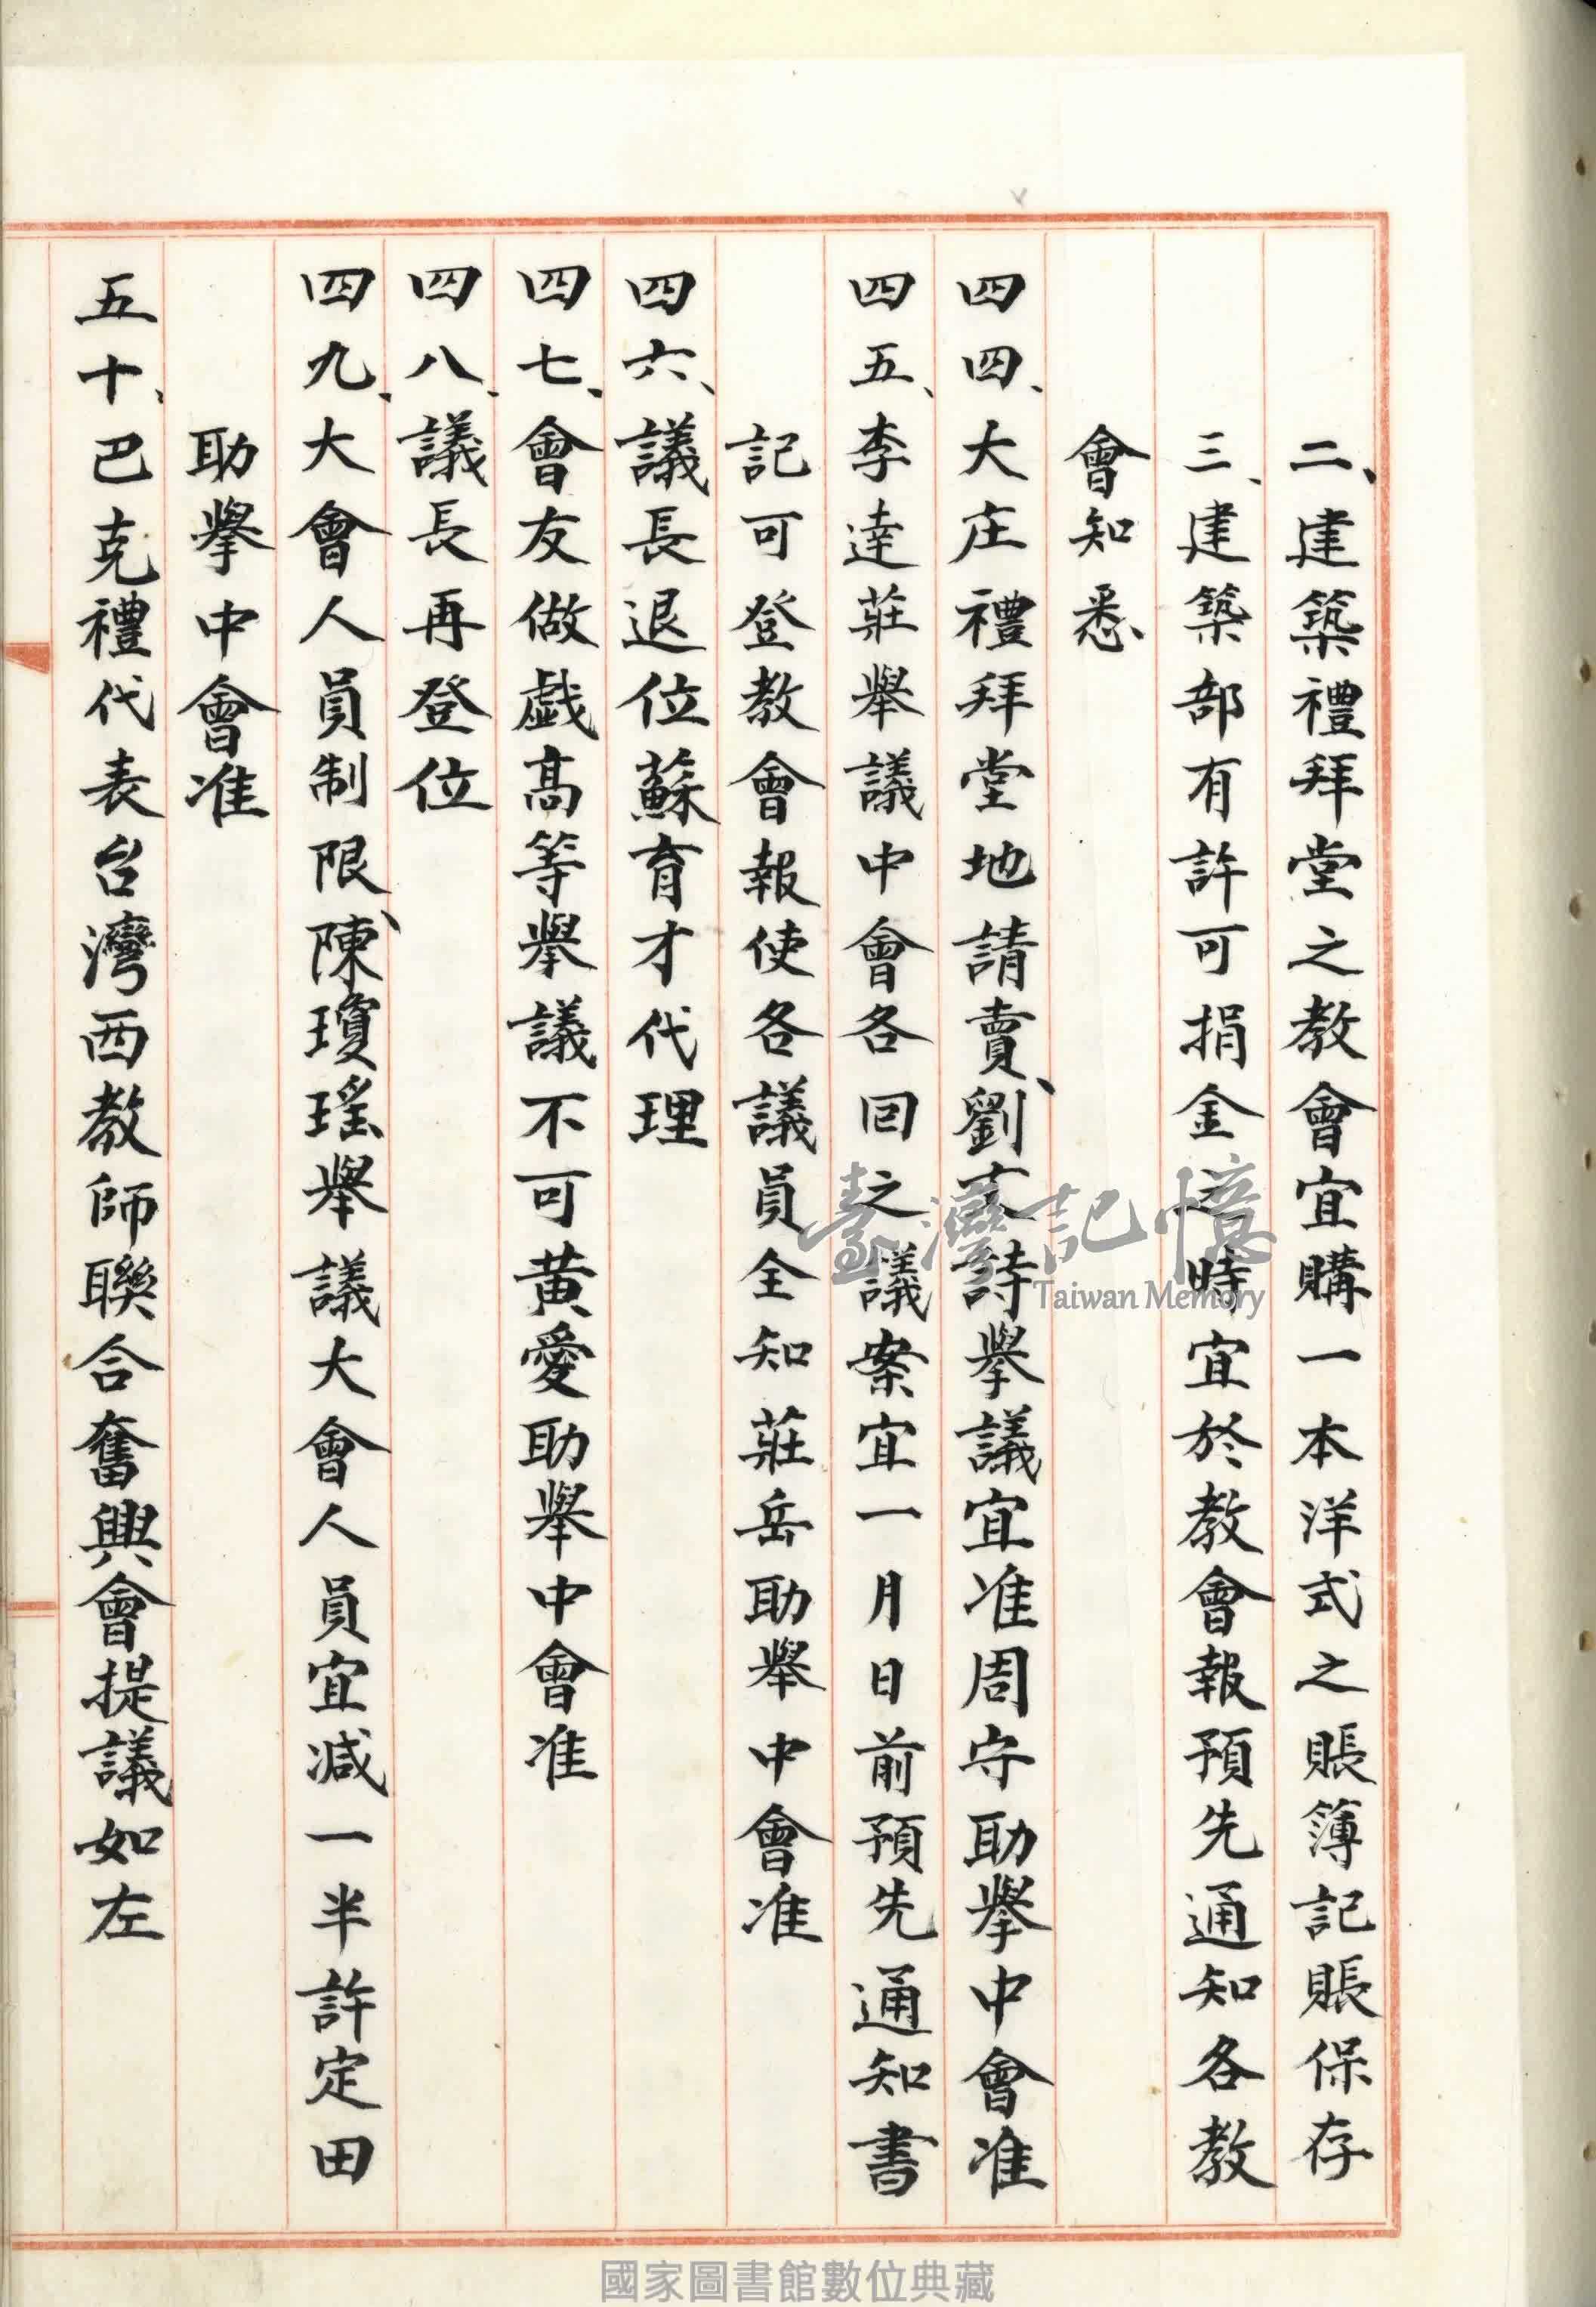 二、建築禮拜堂之教會宜購一本洋式之賬簿記賬保存
三、建築部有許可捐金之時宜於教會報預先通知各教
會知悉
四四、大庄禮拜堂地請賣、劉 詩舉議宜准周守助舉中會准
四五、李達莊舉議中會各回之議案宜一月日前預先通知書
記可登教會報使各議員全知莊岳助舉中會准
四六、議長退位蘇育才代理
四七、會友做戯高等舉議不可黃愛助舉中會准
四八、議長再登位
四九、大會人員制限、陳瓊瑤舉議大會人員宜減一半許定田
助舉中會准
五十、巴克禮代表台灣西教師聯合奮興會提議如左
臺灣記憶
Taiwan Memory
國家圖書館數位典藏